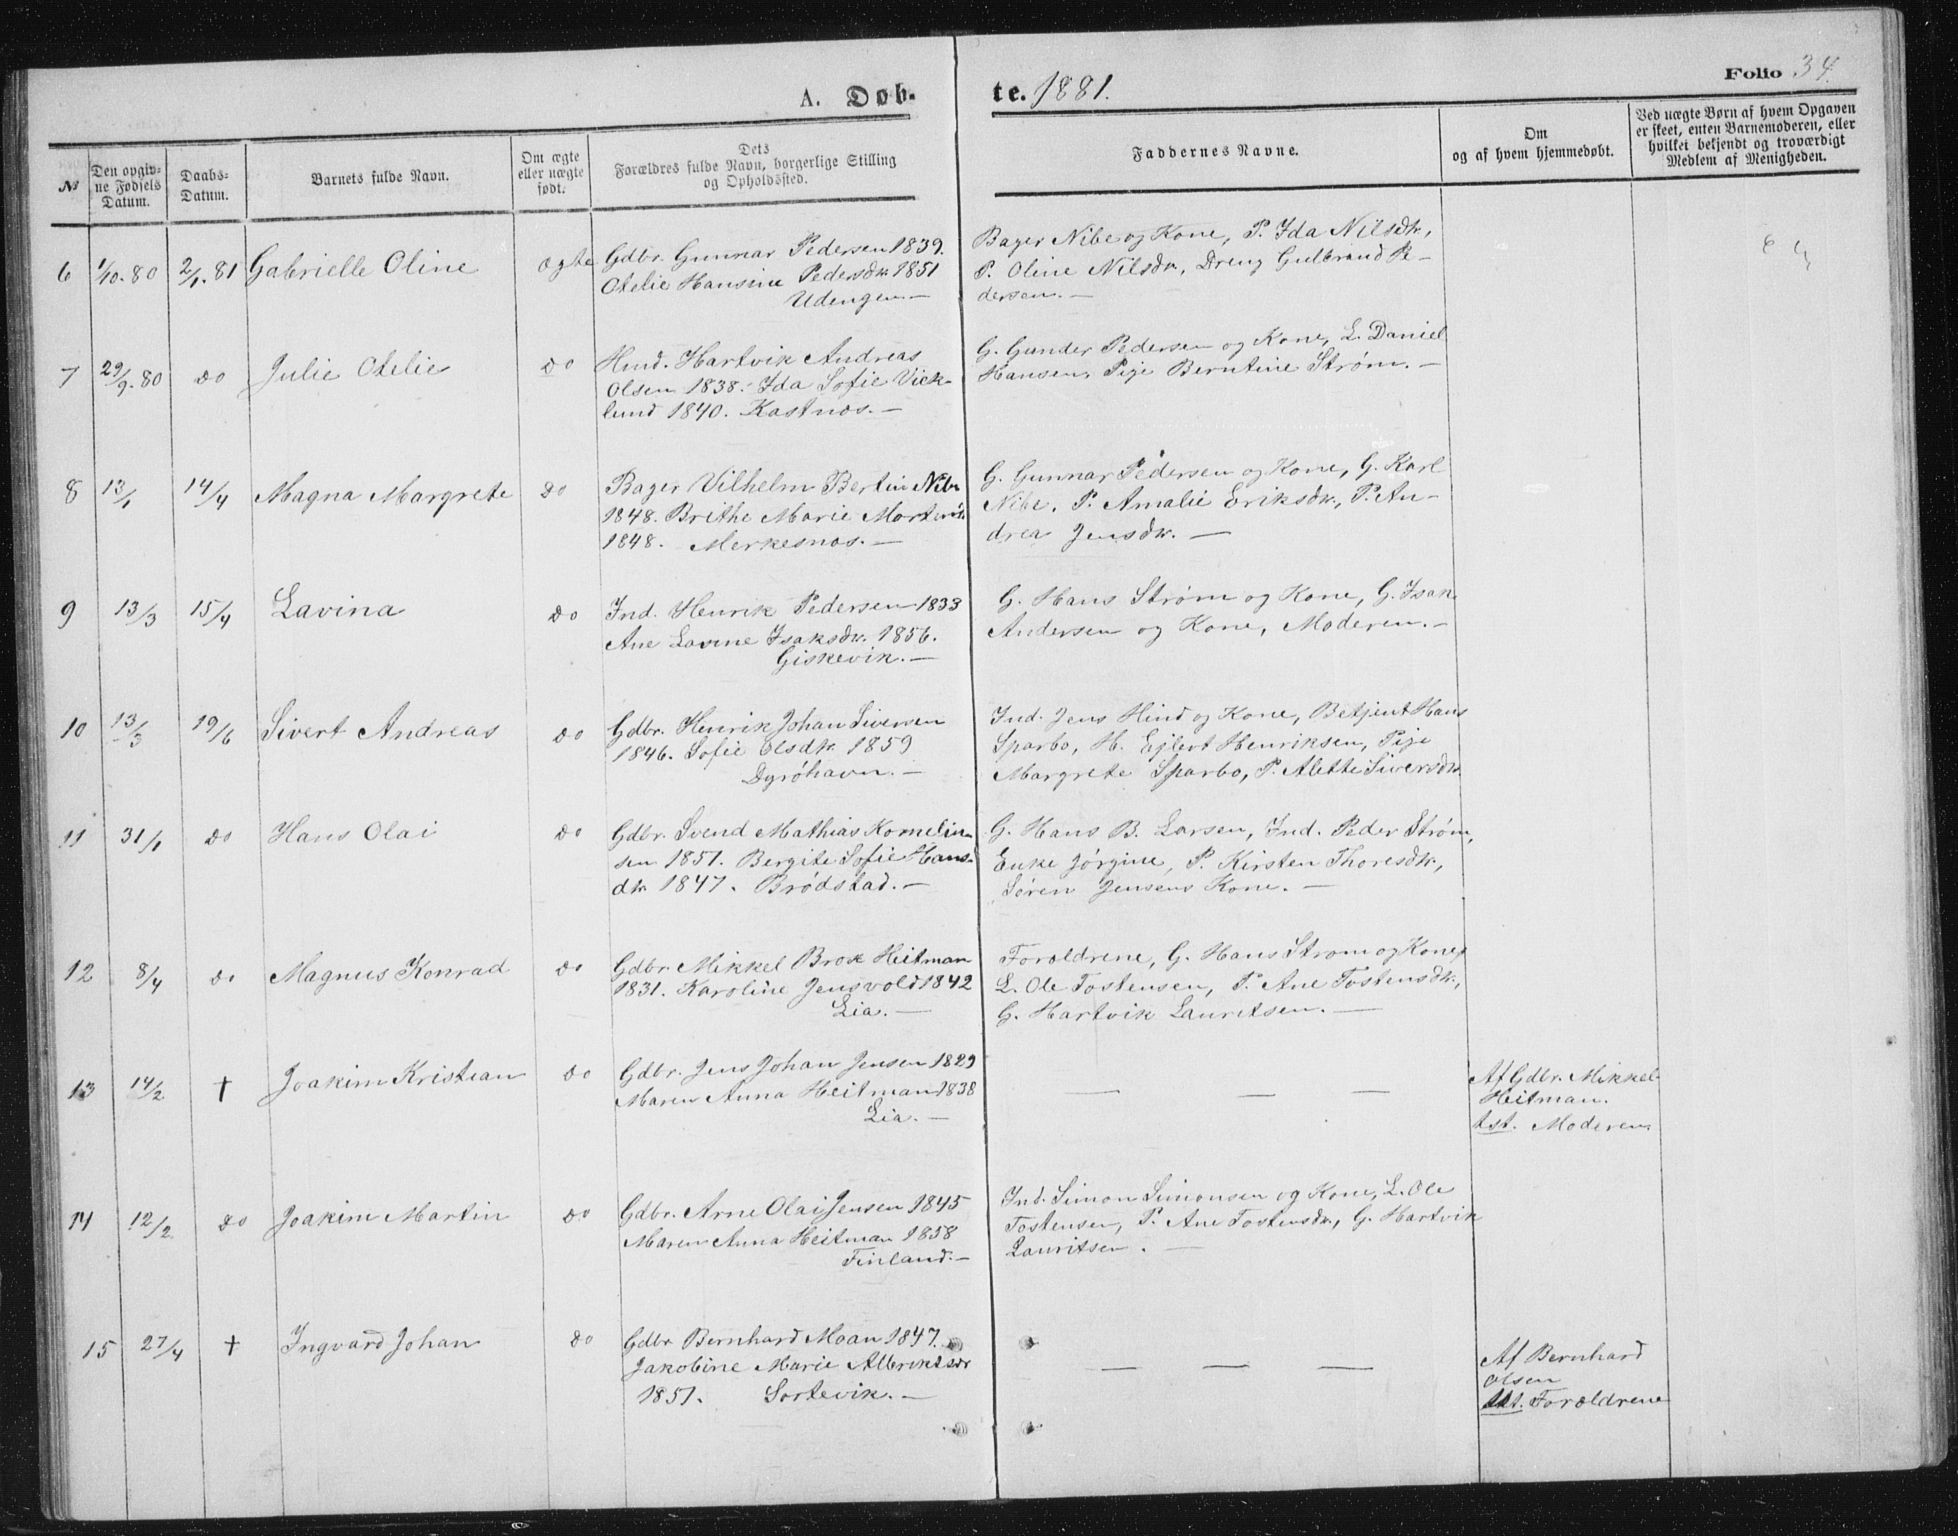 A. Døb-
te. 1881.
Folio 34.
№
Den opgiv-
ne Fødsels
Datum.
Daabs-
Datum.
Barnets fulde Navn.
Om ægte
eller uægte
født.
Dets
Forældres fulde Navn, borgerlige Stilling
og Opholdssted.
Faddernes Navne.
Om
og af hvem hjemmedøbt.
Ved uægte Børn af hvem Opgaven
er skeet, enten Barnemoderen, eller
hvilket bekjendt og troværdigt
Medlem af Menigheden.
6 1/10. 80 2/1. 81 Gabrielle Oline ægte
Gdbr. Gunnar Pedersen 1839.
Otelie Hansine Pedersdtr. 1851
Udengen.—
Bager Nibe og Kone, P. Ida Nilsdtr,
P. Oline Nilsdtr, Dreng Gulbrand Pe-
dersen.—
7 29/9. 80 do Julie Otelie do
Hmd. Hartvik Andreas
Olsen 1838. Ida Sofie Vick-
lund 1840. Kastnæs.—
G. Gunder Pedersen og Kone, L. Daniel
Hansen, Pige Berntine Strøm.—
8 13/1 14/4 Magna Margrete do
Bager Vilhelm Bertin Nibe
1848. Brithe Marie
1848. Merkesnæs.—
G. Gunnar Pedersen og Kone, G. Karl
Nibe, P. Amalie Eriksdtr, P. An-
drea Jensdtr.—
9 13/3 15/4 Lavina do
Ind. Henrik Pedersen 1833
Ane Lavine Isaksdtr. 1856.
Giskevik.—
G. Hans Strøm og Kone, G. Isak
Andersen og Kone, Moderen.—
10 13/3 19/6 Sivert Andreas do
Gdbr. Henrik Johan Siversen
1846. Sofie Olsdtr. 1859
Dyrøhavn.—
Ind. Jens Hind og Kone, Betjent Hans
Sparbo, H. Ejlert Henriksen, Pige
Margrete Sparbo, P. Alette Siversdtr.
11 31/1 do Hans Olai do
Gdbr. Svend Mathias Kornelius-
sen 1851. Bergite Sofie Hans-
dtr 1847. Brødstad.—
G. Hans B. Larsen, Ind. Peder Strøm,
Enke Jørgine, P. Kirsten Thoresdtr,
Søren Jensens Kone.—
12 8/4 do Magnus Konrad do
Gdbr. Mikkel Brox Heitman
1831. Karoline Jensvold 1842
Lia.—
Forældrene, G. Hans Strøm og Kone,
L. Ole Tostensen, P. Ane Tostensdtr,
G. Hartvik Lauritsen.—
13 14/2 † Joakim Kristian do
Gdbr. Jens Johan Jensen 1829
Maren Anna Heitman 1838
Lia.—
— — —
Af Gdbr. Mikkel
Heitman.
tst. Moderen
14 12/2 do Joakim Martin do
Gdbr. Arne Olai Jensen 1845
Maren Anna Heitman 1858
Finland.—
Ind. Simon Simonsen og Kone, L. Ole
Tostensen, P. Ane Tostensdtr, G. Hartvik
Lauritsen.—
15 27/4 † Ingvard Johan do
Gdbr Bernhard Moan 1847.
Jakobine Marie
1851. Sortevik.—
— — —
Af Bernhard
Olsen
tst. Forældrene